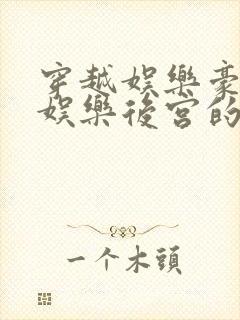 穿越娛樂豪
娛樂後宮的
一个木頭